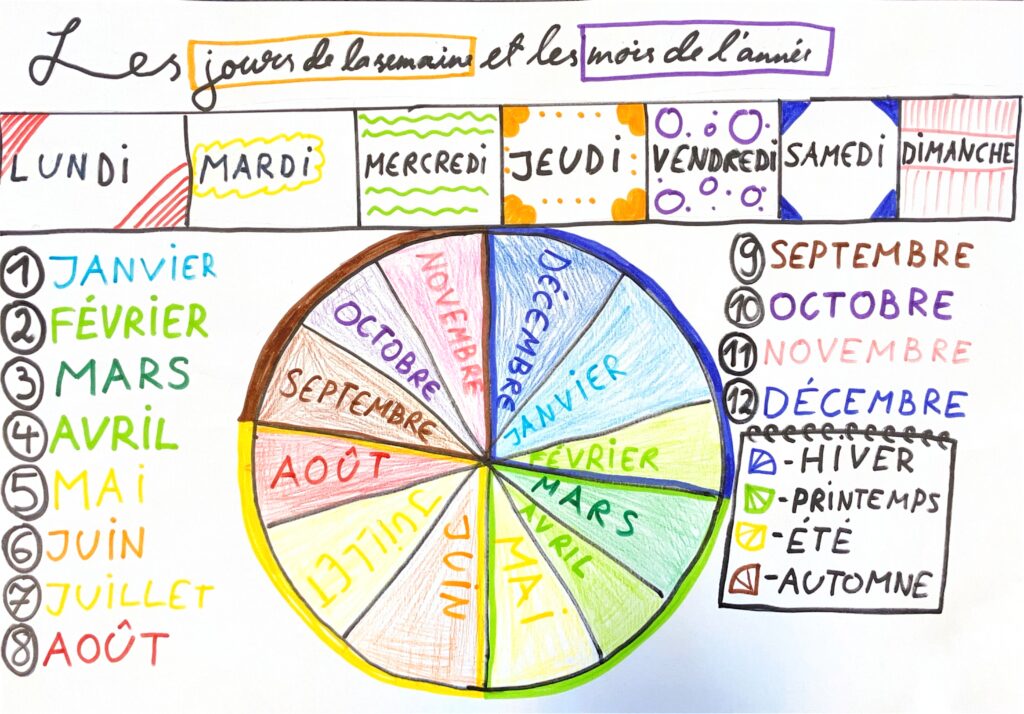 Les jours de la semaine et les mois de l'année
LUNDI MARDI MERCREDI JEUDI VENDREDI SAMEDI DIMANCHE
1 JANVIER
2 FÉVRIER
3 MARS
4 AVRIL
5 MAI
6 JUIN
7 JUILLET
8 AOÛT
DÉCEMBRE
JANVIER
FÉVRIER
MARS
AVRIL
MAI
JUIN
JUILLET
AOÛT
SEPTEMBRE
OCTOBRE
NOVEMBRE
9 SEPTEMBRE
10 OCTOBRE
11 NOVEMBRE
12 DÉCEMBRE
-HIVER
-PRINTEMPS
-ÉTÉ
-AUTOMNE